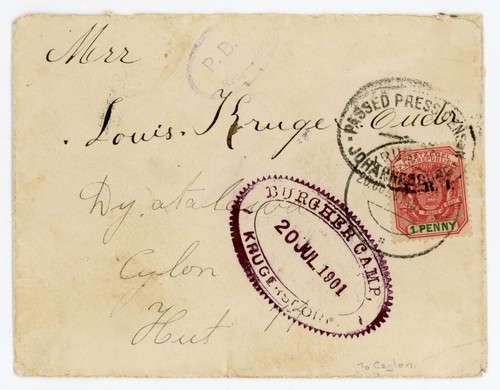 Mrr
P.B.
Louis. Kruger Oudr
PASSED PRESS CENSOR
JOHANNESBURG
E.R.I.
1 PENNY
Dyatalawa
BURGHER CAMP,
20 JUL 1901
KRUGERSDORP.
Cylon
Hut
To Ceylon.